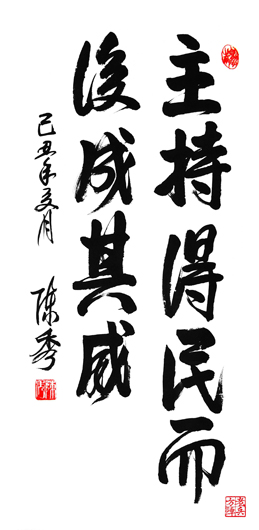 主持得民而
後成其威
己丑年夏月
陈秀